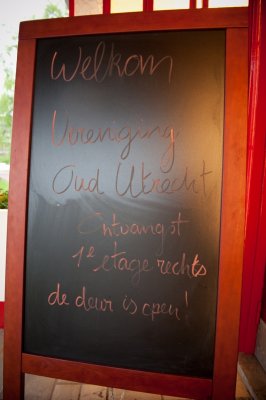 Welkom
Vereniging
Oud Utrecht
Ontvangst
1e etage rechts
de deur is open!